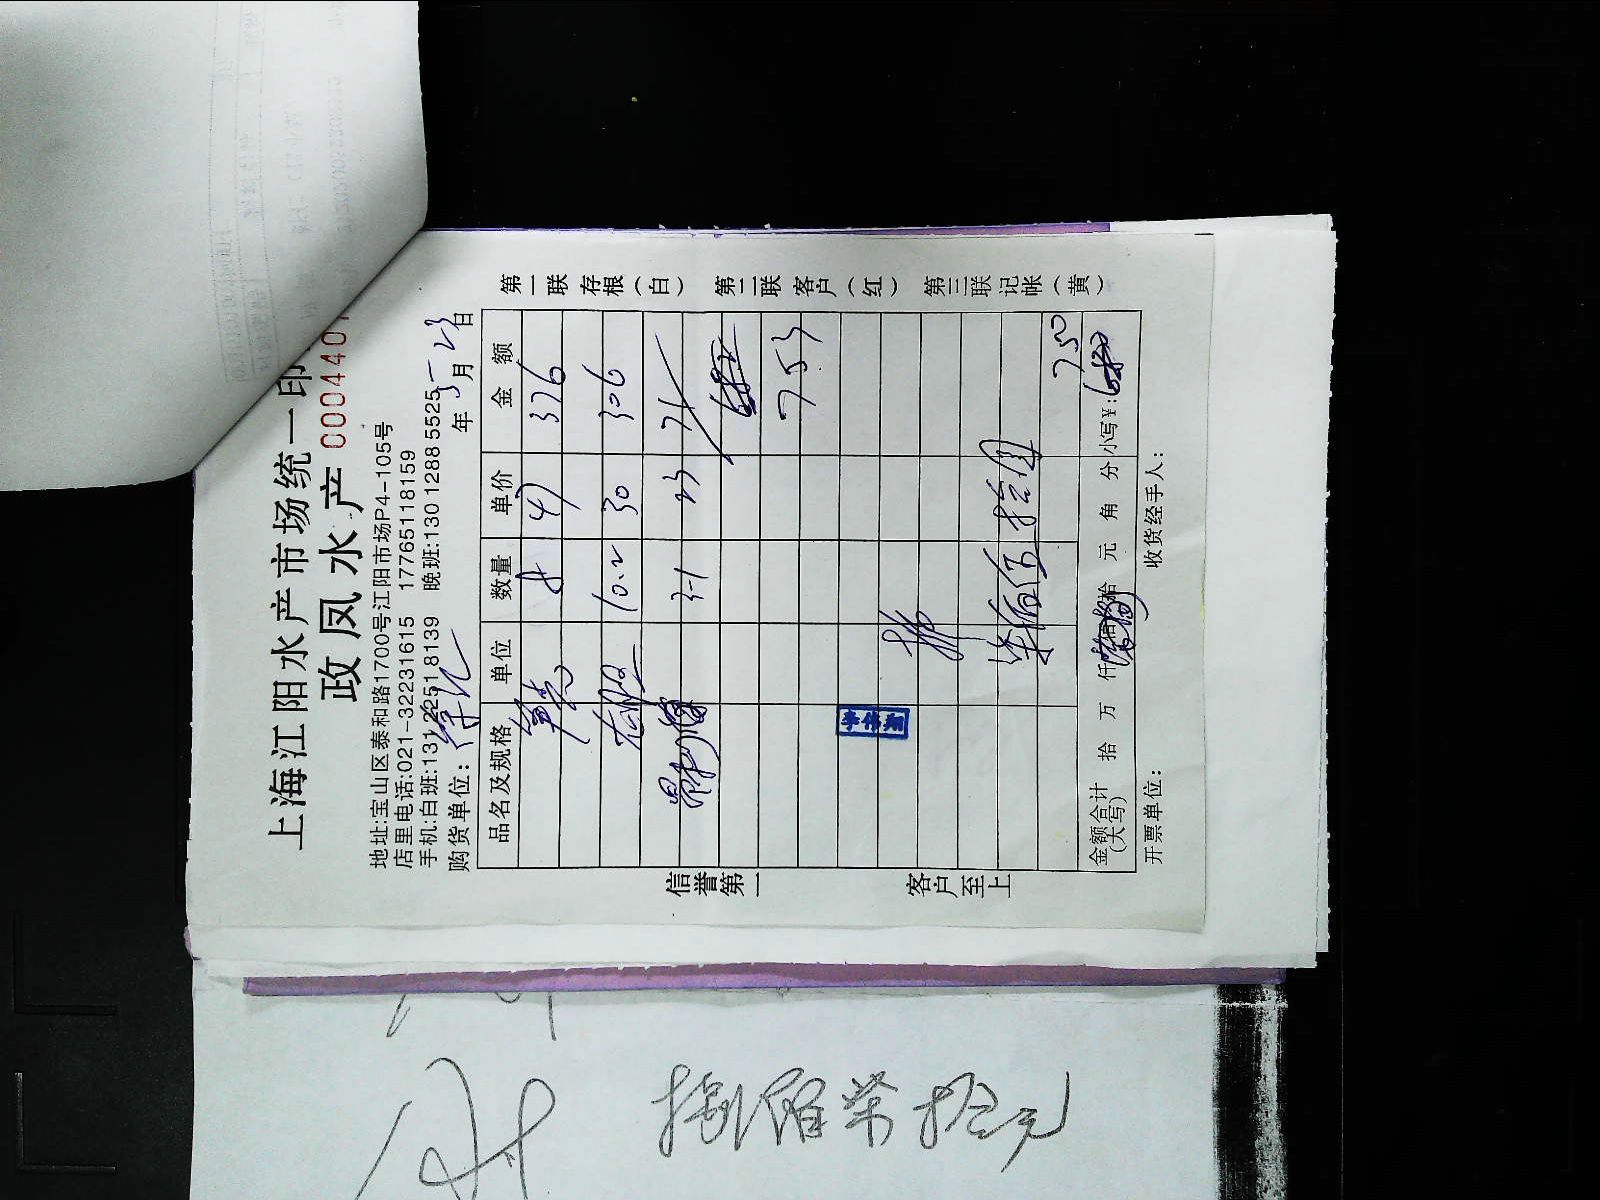 上海江阳水产市场统一印
政凤水产 000440
地址:宝山区泰和路1700号江阳市场P4-105号
店里电话:021-32231615 17765118159
手机:白班:131 2251 8139 晚班:130 1288 5525
购货单位: 年 5月23日
品名及规格 单位 数量 单价 金额
8 47 376
10.2 30 306
3.1 23 71
753
李伟翔
柒佰伍拾圆
750
金额合计(大写) 拾 万 仟 佰 拾 元 角 分 小写¥:
开票单位: 收货经手人:
第一联 存根(白) 第二联 客户(红) 第三联 记帐(黄)
信誉第一 客户至上
捌佰柒拾元